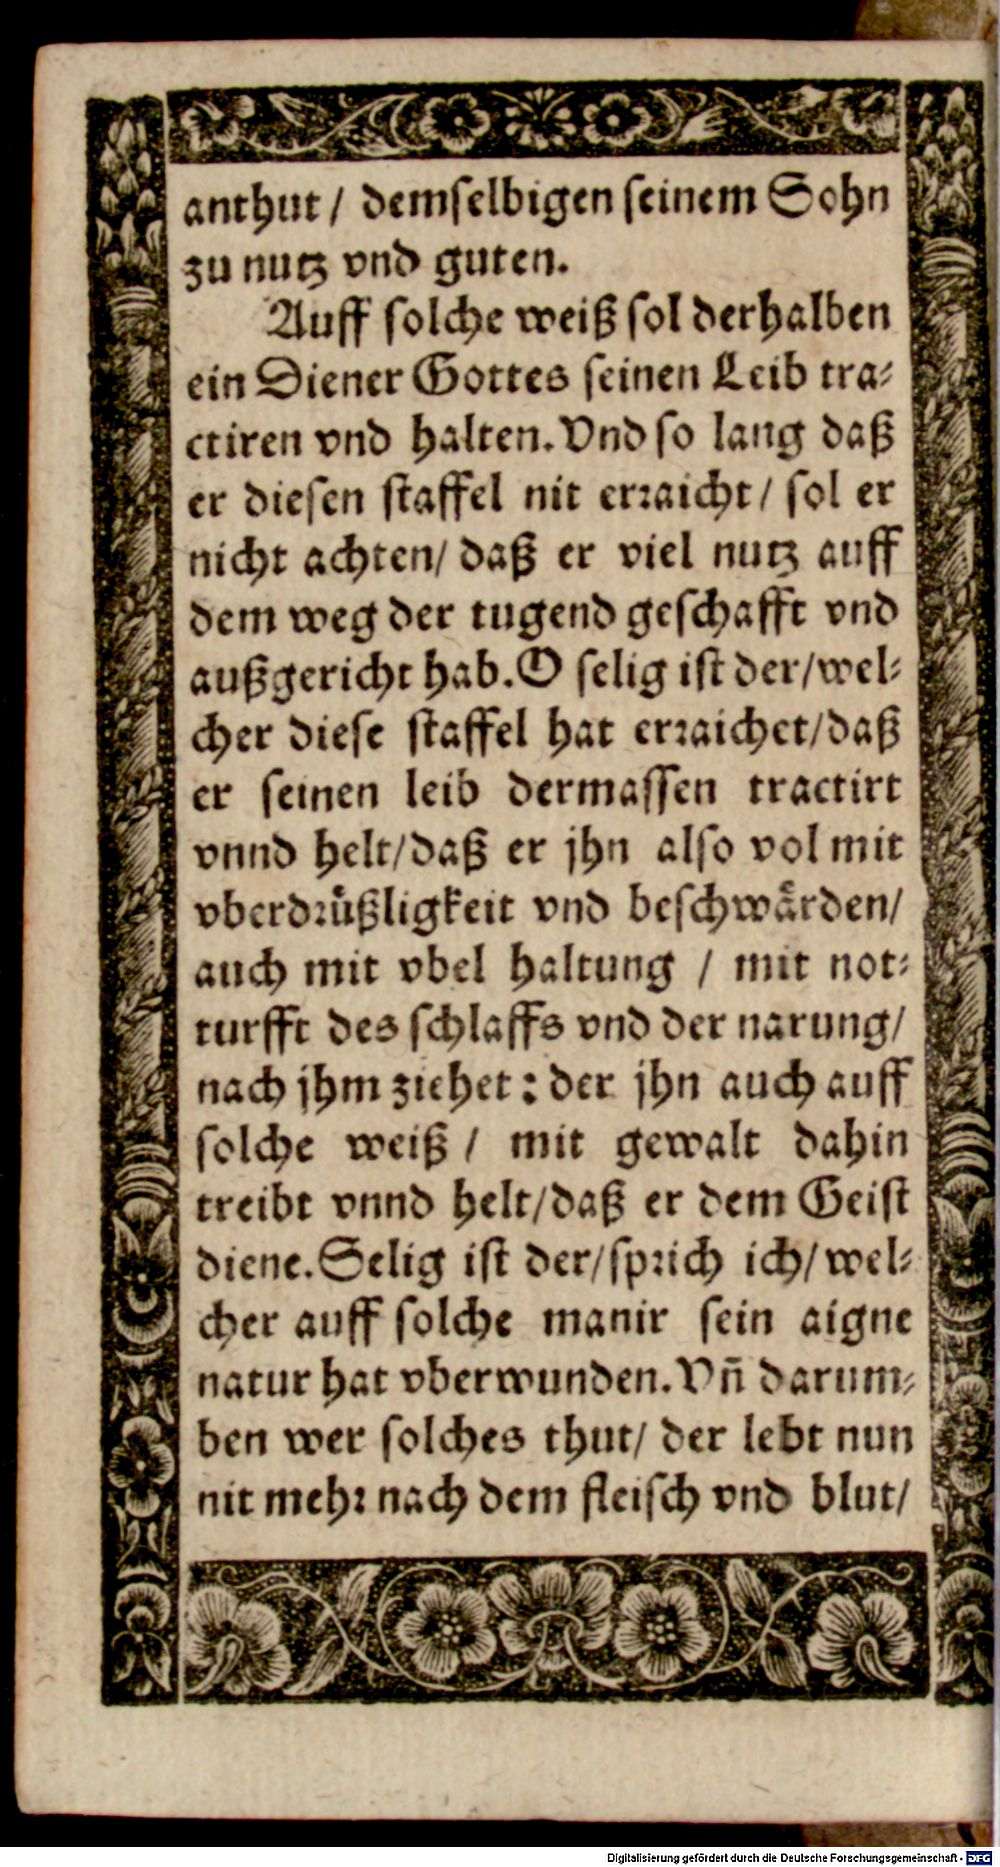 anthut / demselbigen seinem Sohn
zu nutz vnd guten.
Auff solche weiß sol derhalben
ein Diener Gottes seinen Leib tra⸗
ctiren vnd halten. Vnd so lang daß
er diesen staffel nit erꝛaicht / sol er
nicht achten / daß er viel nutz auff
dem weg der tugend geschafft vnd
außgericht hab. O selig ist der / wel⸗
cher diese staffel hat erꝛaichet / daß
er seinen leib dermassen tractirt
vnnd helt / daß er jhn also vol mit
vberdꝛuͤßligkeit vnd beschwaͤrden /
auch mit vbel haltung / mit not⸗
turfft des schlaffs vnd der narung /
nach jhm ziehet : der jhn auch auff
solche weiß / mit gewalt dahin
treibt vnnd helt / daß er dem Geist
diene. Selig ist der / spꝛich ich / wel⸗
cher auff solche manir sein aigne
natur hat vberwunden. Vn̄ darum⸗
ben wer solches thut / der lebt nun
nit mehꝛ nach dem fleisch vnd blut /
Digitalisierung gefördert durch die Deutsche Forschungsgemeinschaft - DFG